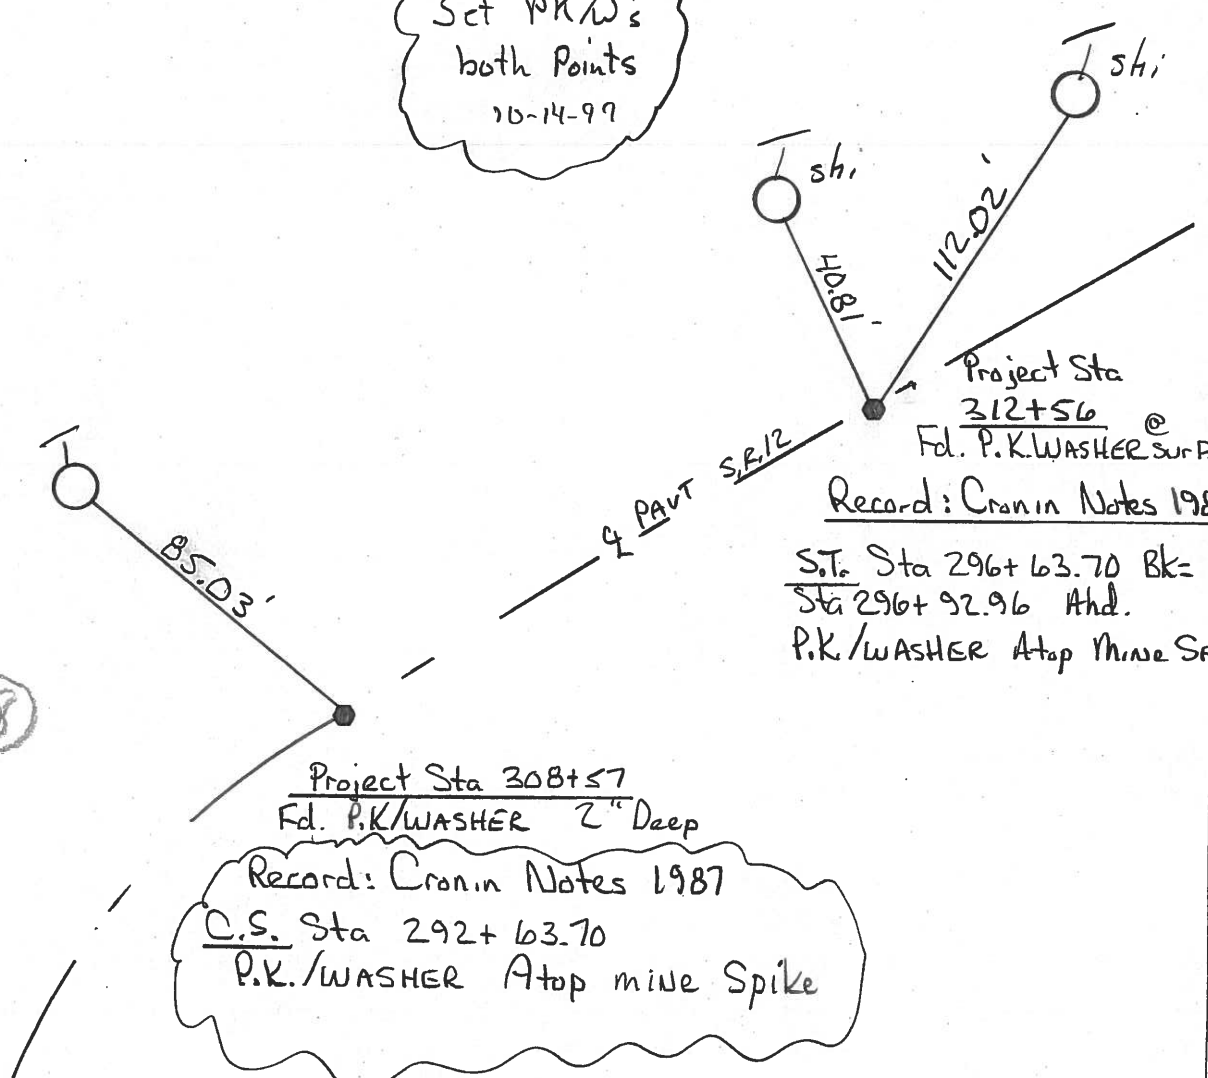 Set PK/W's
both Points
10-14-97
shi
shi
112.02'
40.81'
Project Sta
312+56
Fd. P.K.WASHER @ Surf
Record: Cronin Notes 198
S.R.12
℄ PAVT
S.T. Sta 296+63.70 Bk=
Sta 296+92.96 Ahd.
P.K./WASHER Atop Mine Sp
85.03'
8
Project Sta 308+57
Fd. P.K/WASHER 2" Deep
Record: Cronin Notes 1987
C.S. Sta 292+63.70
P.K./WASHER Atop mine Spike